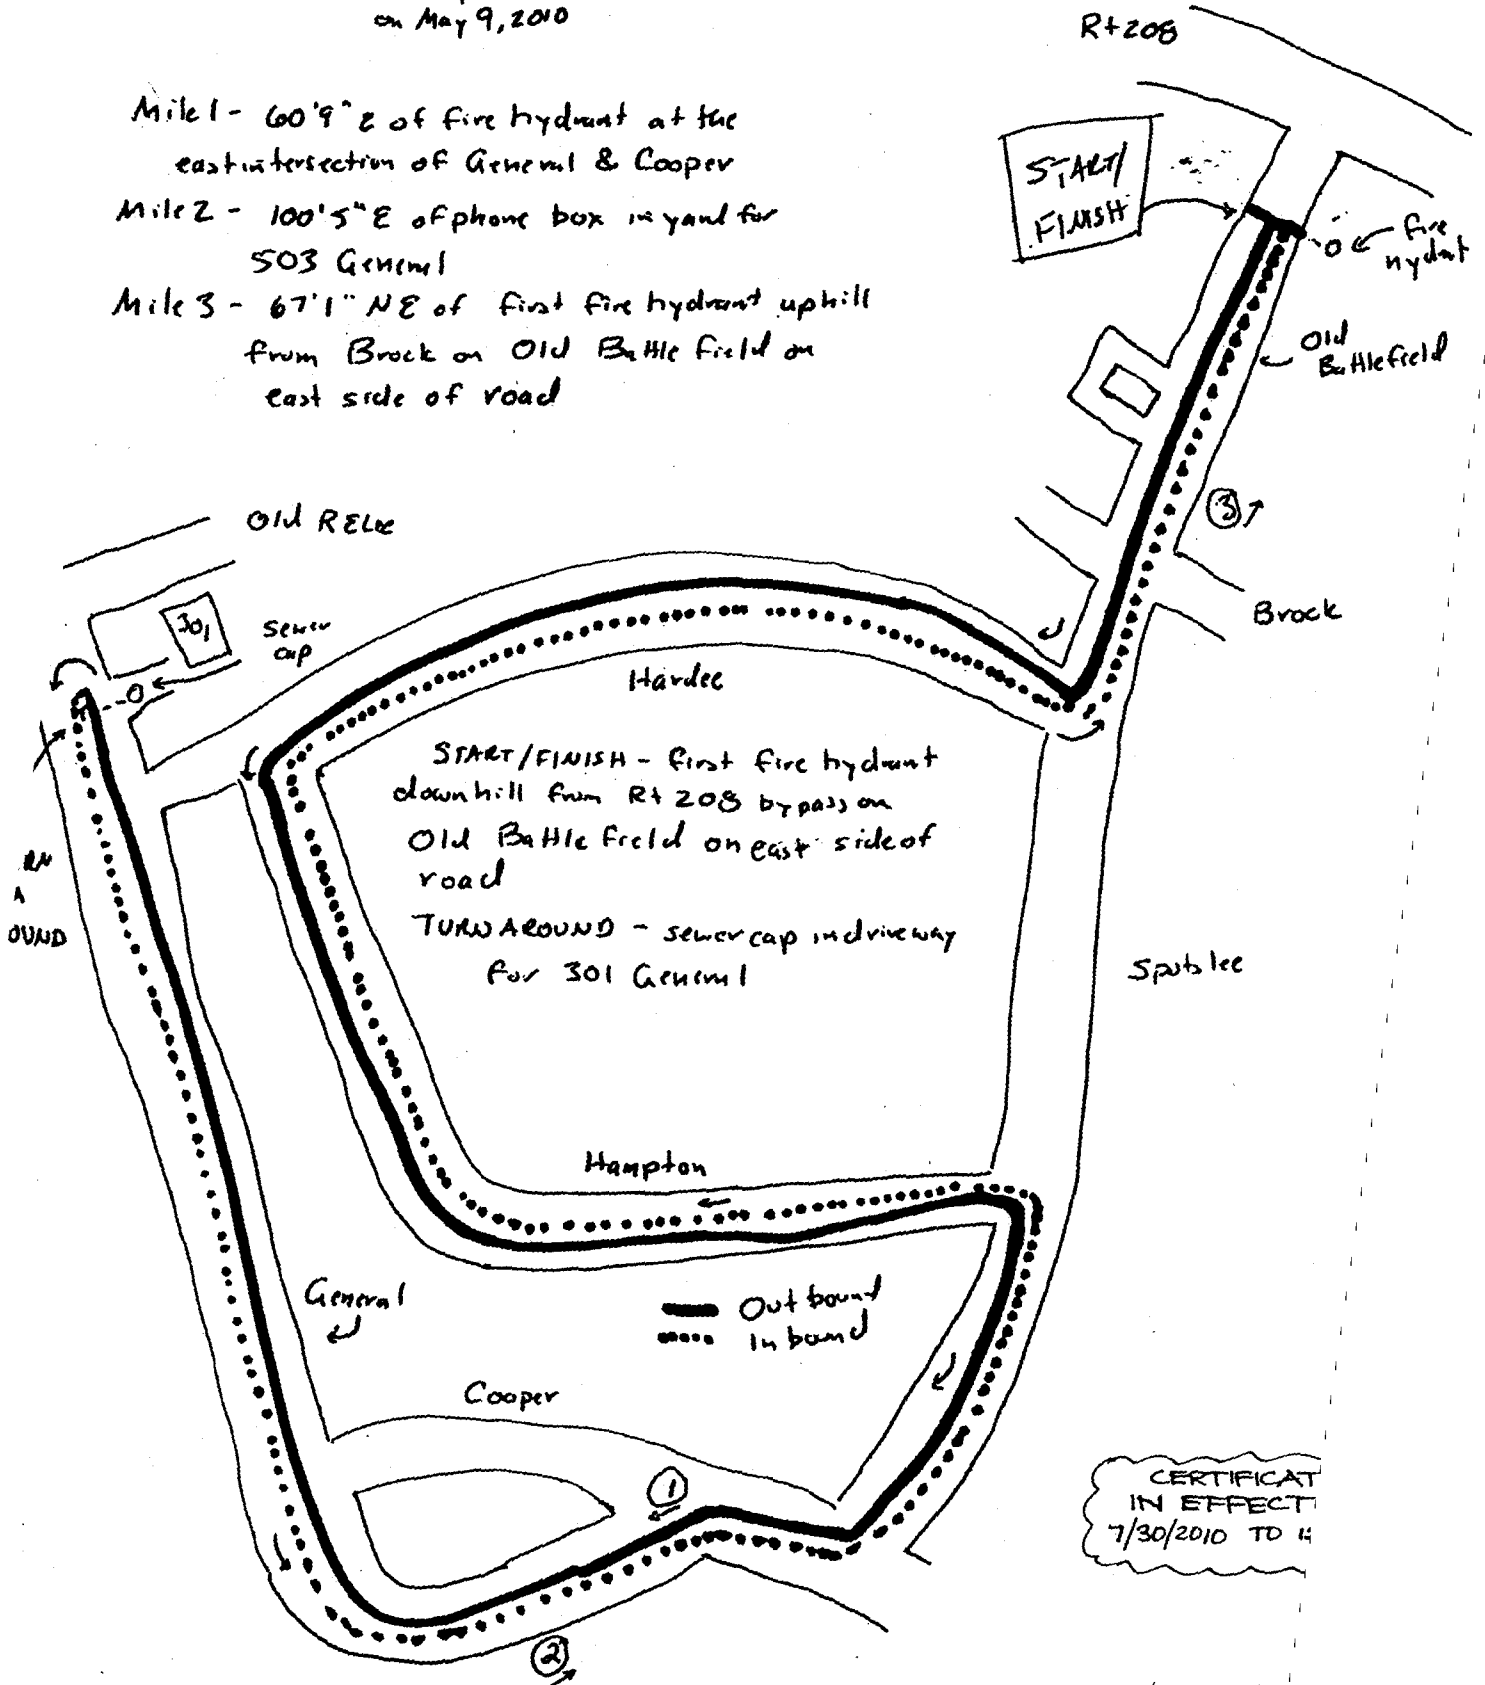 on May 9, 2010
Rt 208
Mile 1 - 60'9" E of fire hydrant at the
east intersection of General & Cooper
Mile 2 - 100'5" E of phone box in yard for
503 General
Mile 3 - 67'1" NE of first fire hydrant uphill
from Brock on Old Battlefield on
east side of road
START/
FINISH
fire
hydrant
Old
Battlefield
3
Brock
Old RELee
301
sewer
cap
Hardee
START/FINISH - first fire hydrant
downhill from Rt 208 bypass on
Old Battlefield on east side of
road
TURNAROUND - sewer cap in driveway
for 301 General
RN
A
OUND
Spotslee
Hampton
General
Outbound
Inbound
Cooper
1
2
CERTIFICAT
IN EFFECT
7/30/2010 TO 1